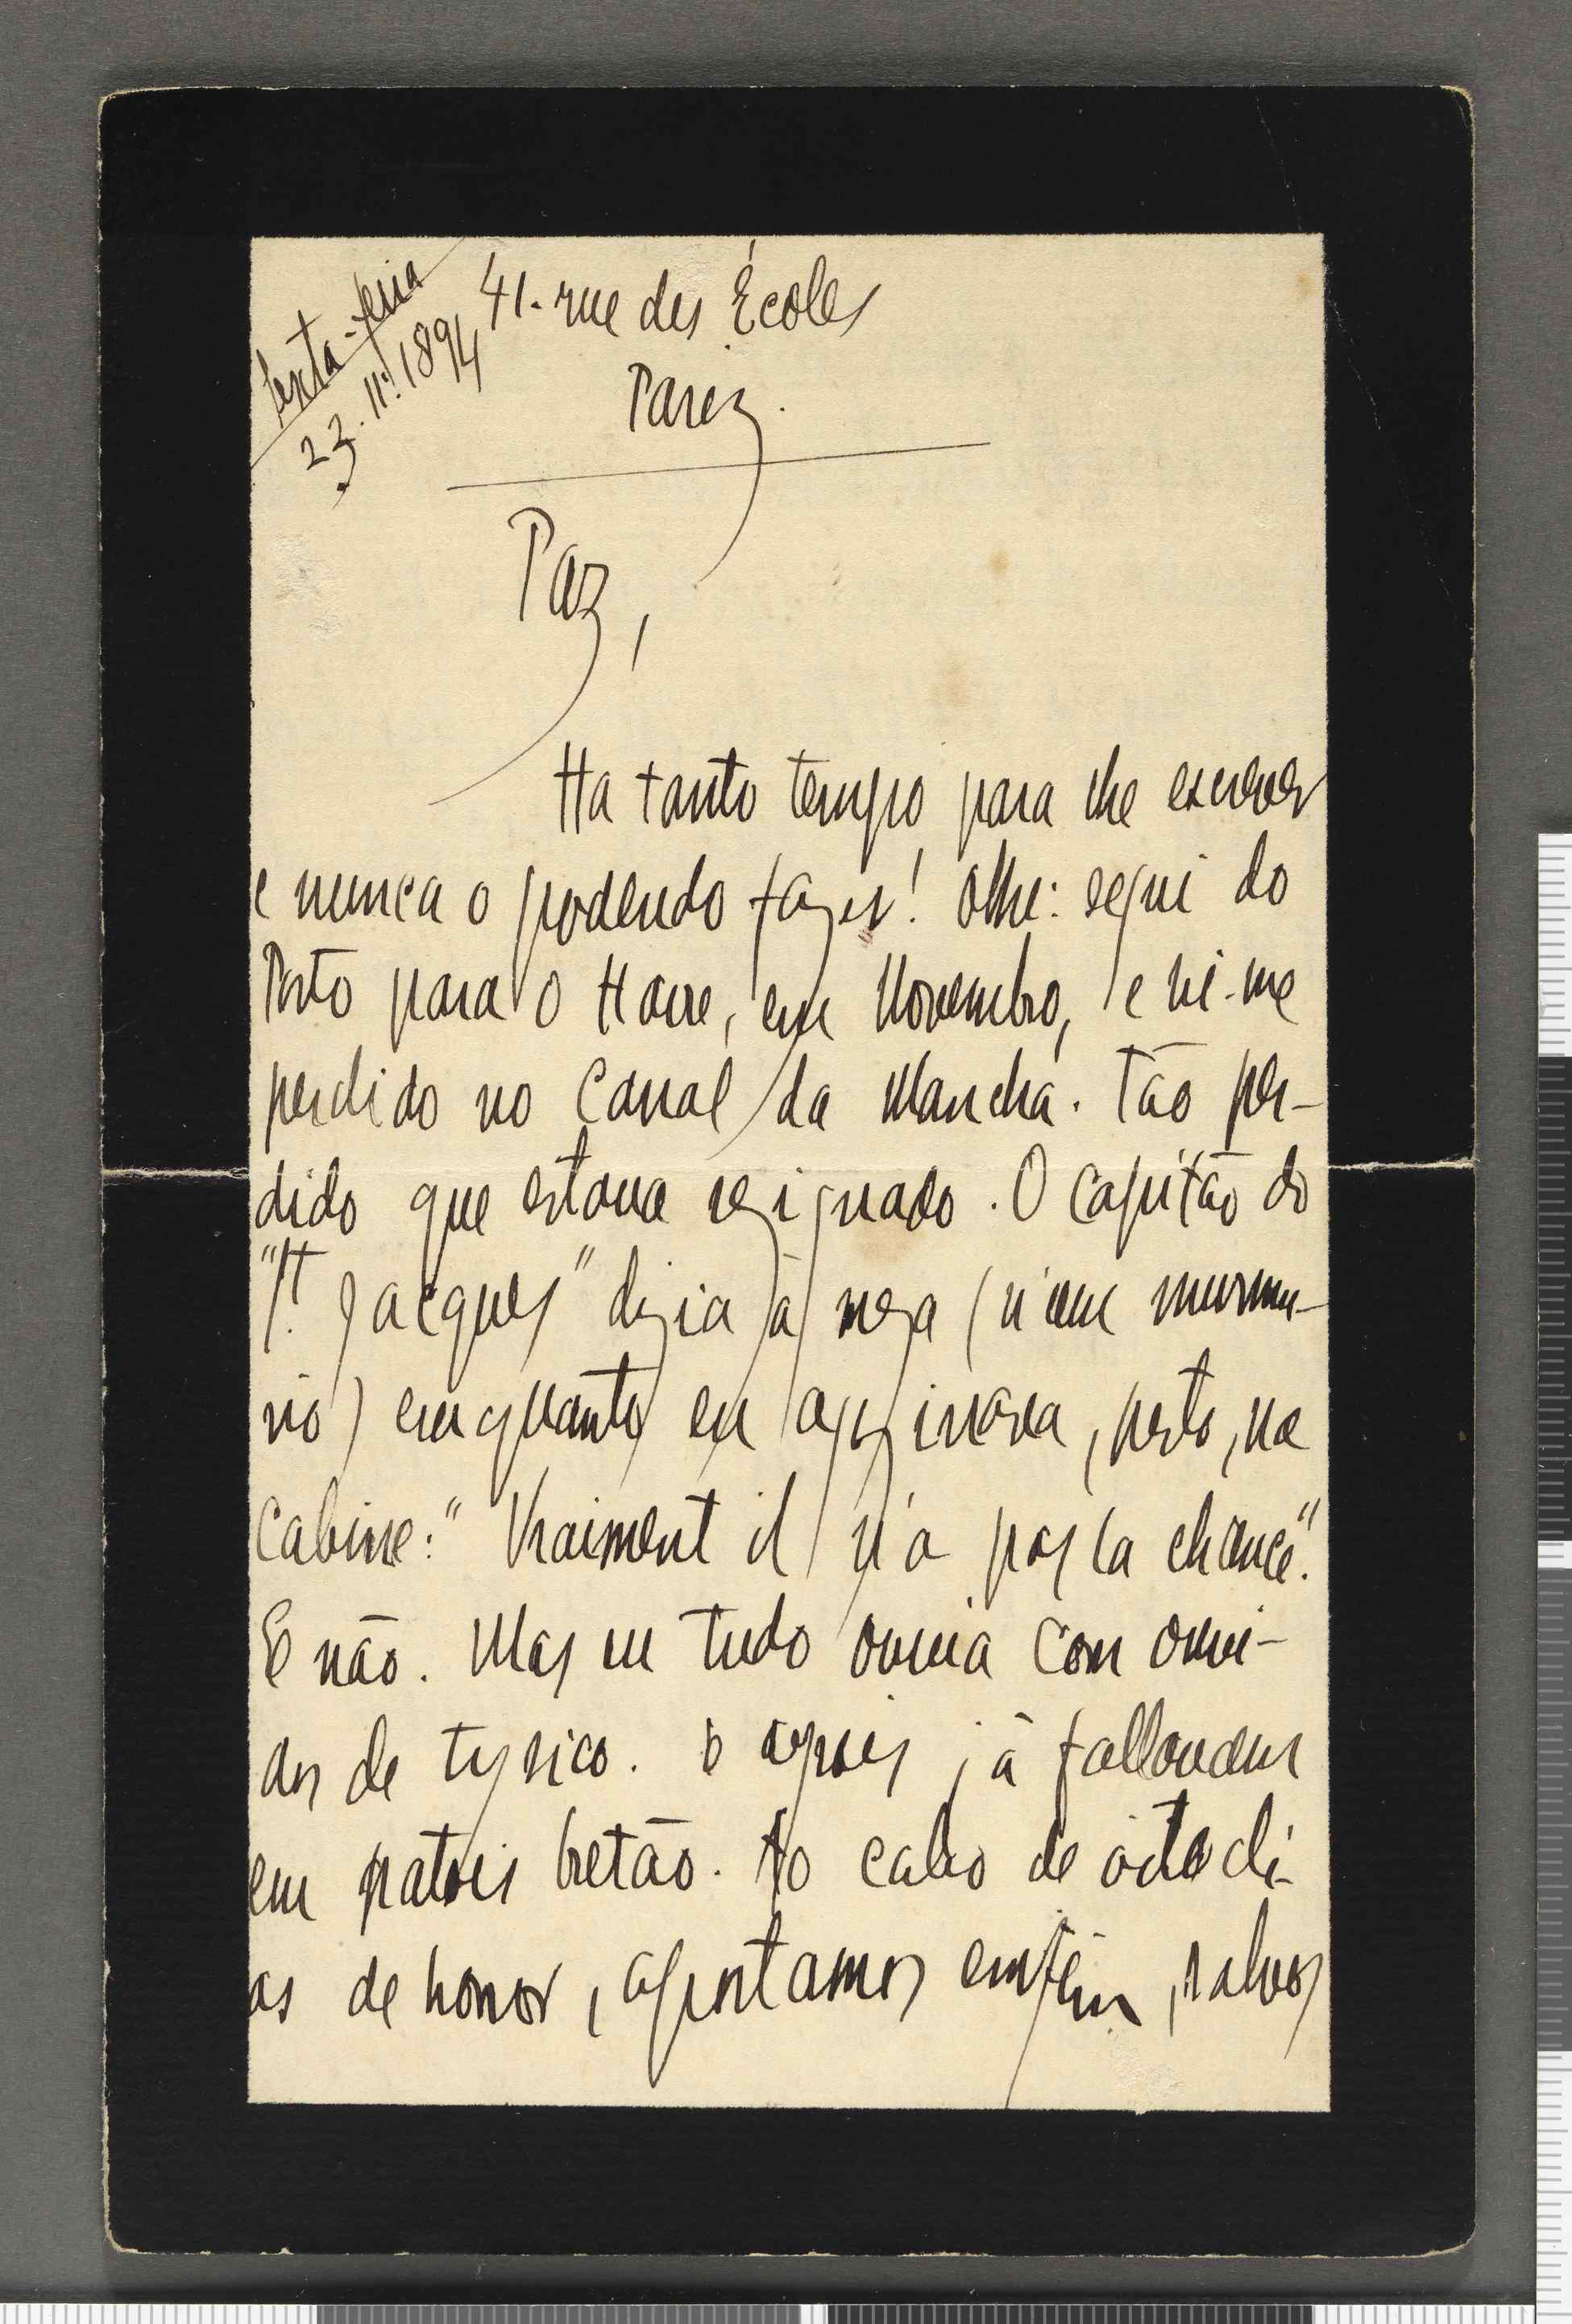 Sexta-feira
23. 11. 1894
41. rue des Écoles
Pariz.
Paz,
Ha tanto tempo para lhe escrever
e nunca o podendo fazer! Olhe: segui do
Porto para o Havre, em Novembro, e vi-me
perdido no Canal da Mancha. Tão per-
dido que estava resignado. O capitão do
"St. Jacques" dizia á meza (n'um murmu-
rio) emquanto eu agonisava, perto, na
cabine: "Vraiment il n'a pas la chance".
E não. Mas eu tudo ouvia com ouvi-
dos de tysico. E apoz já fallavam
em patois bretão. Ao cabo de oito di-
as de horror, aportamos emfim, salvos